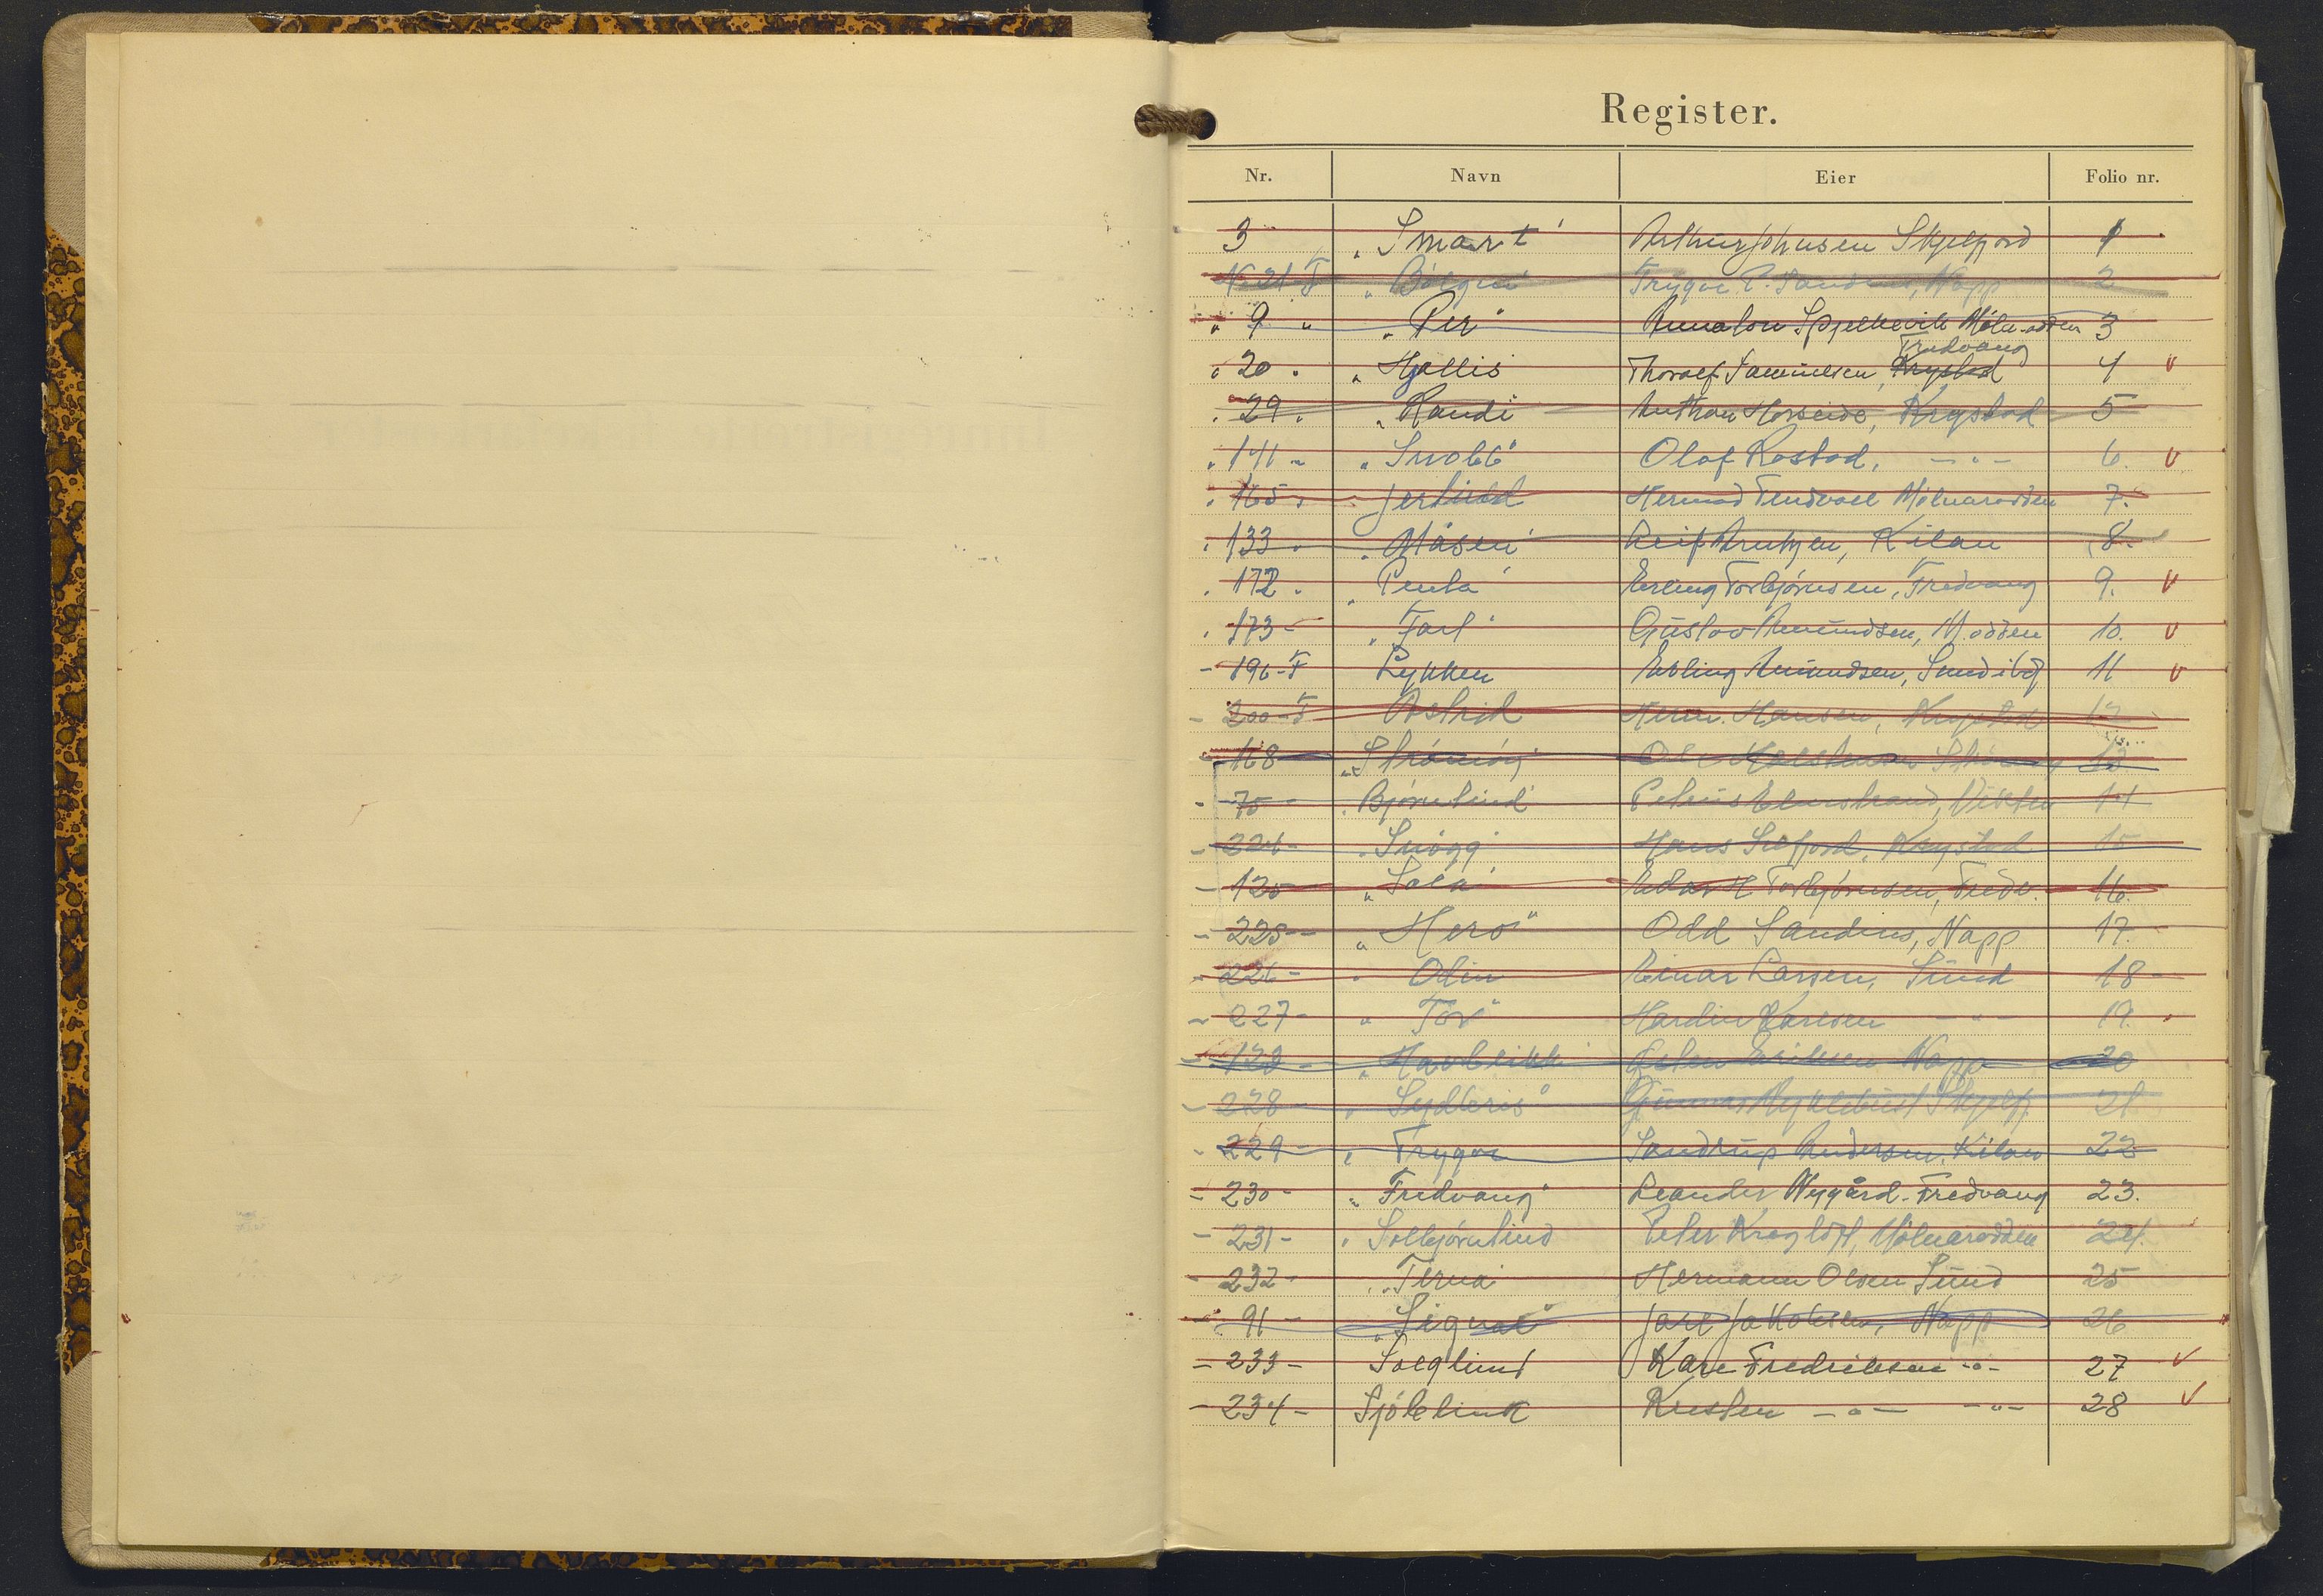 Register.
Nr. Navn Eier Folio nr.
3 „Smart" Arthur Johnsen Skjelfjord 1
N-21-F „Bølgen" Trygve P. Sandnes, Napp 2
" 9 " „Per" Annaton Spjelkevik Mølnarodden 3
Fredvang
" 20 " „Hjallis Thoralf Samuelsen, Krystad 4 v
" 29 " „Randi" Anthon Horseide, Krystad 5
" 141 " „Snobb" Olaf Rostad, - " - 6. v
" 165 " Jerhild Hermod Tendvoll Mølnarodden 7.
" 133 " „Måsen" Leif Arntzen, Kilan 8.
" 172 " „Penta" Erling Torbjørnsen, Fredvang 9. v
" 173 - „Farl" Gustav Amundsen, M.odden 10. v
- 196-F Lykken Edling Amundsen, Sund i Lof 11 v
- 200-F Astrid Herm. Hansen, Krystad 12
- 168 - „Strømøy" Ole 13
- 75 - „Bjørntind" Petrus Elvestrand, Vikten 14
- 224 - „Snøgg" Hans Selfjord, Krystad 15
- 120 - „Sola" Edor H Torbjørnsen, Fredv. 16.
- 225 - „Hero" Odd Sandnes, Napp 17.
- 226 - " Odin Einar Larsen, Sund 18 -
- 227 - " Tor" Hardin Karlsen - " - 19.
- 128 - „Havblikk Esten Eriksen Napp 20
- 228 - „Sydkris" Gunnar Myklebust Skjelfj. 21
- 229 - „Trygve Sandrup Andersen, Kilan 22
- 230 - „Fredvang" Leander Nygård - Fredvang 23.
- 231 - " Solbjørntind Peter Krogtoft, Mølnarodden 24.
- 232 - „Terna" Hermann Olsen Sund 25
- 91 - „Signal" Jarl Jakobsen, Napp 26
- 233 - Solglimt Kåre Fredriksen - " - 27 v
- 234 - Sjøblink Kristen - " - - " - 28 v